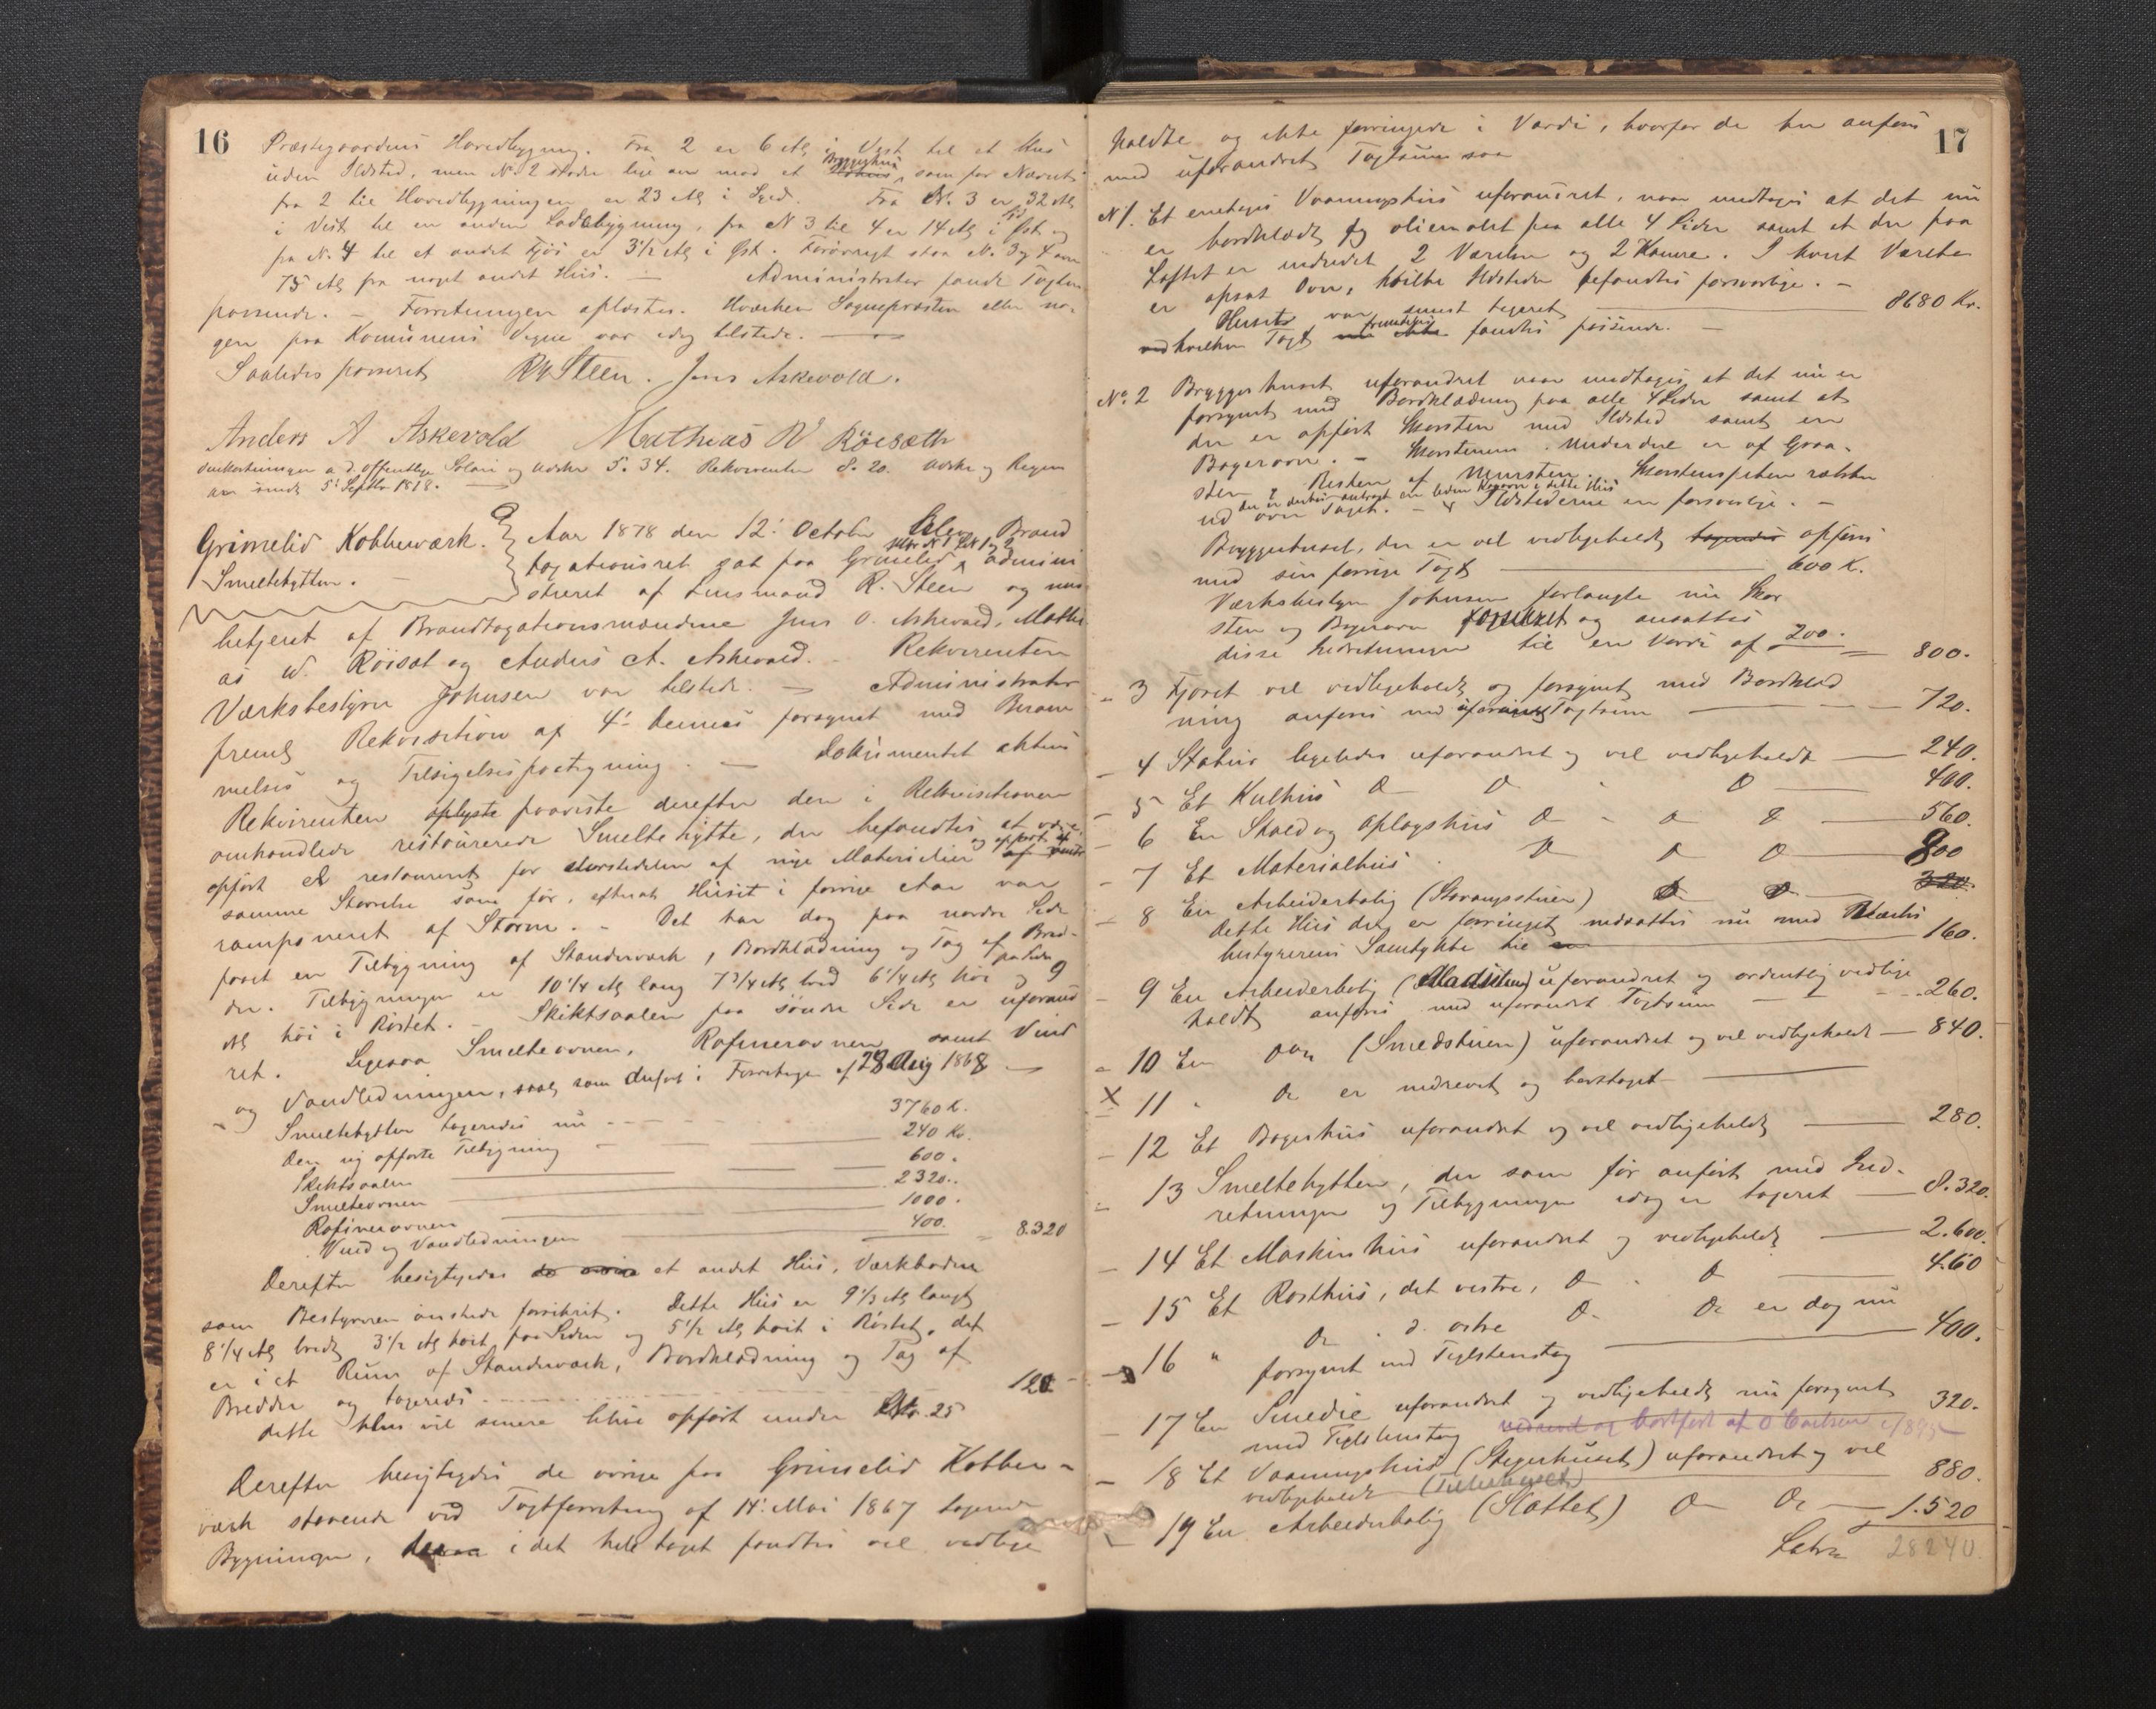 16
Præstegaardens Hovedbygning. Fra 2 er 6 Al i Vest til et Hus
uden Ildsted, men No 2 støder lige an mod et Bryggehus, som før Nævnt.
fra 2 til Hovedbygningen er 23 Al i Syd. Fra No. 3 er 32 Al
i Vest til en anden Ladebygning, fra N 3 til 4 er 14 Al i Øst og
fra N. 4 til et andet Fjøs er 3 1/2 Al i Øst. Forøvrigt staa N. 3 og 4 over
75 Al fra noget andet Hus. — Administrator fandt Taxten
passende. — Forretningen oplæstes. Hverken Sognepræsten eller no-
gen paa Komunens Vegne var idag tilstede. —
Saaledes passeret
R Steen. Jens Askevold.
Anders A Askevold Mathias W Röisæth
Omkostninger a d. offentlige Solari og Udskr 5.34. Rekvirenten 8.20. Udskr og Regn
er sendt 5 Septbr 1878.
Grimelid Kobberværk.
Smeltehytten. —
Aar 1878 den 12te October blev Brand
taxationsret sat paa Grimelid admini
streret af Lensmand R. Steen og med
betjent af Brandtaxationsmændene Jens O. Askevold, Mathi
as W. Röisæt og Anders A. Askevold. Rekvirenten
Værksbestyrer Johnsen var tilstede. — Administrator
fremlæ Rekvisition af 4de dennes forsynet med Beram
melses og Tilsigelsespaategning. — Dokumentet aktens
Rekvirenten oplyste paaviste derefter den i Rekvisitionen
omhandlede restaurerede Smeltehytte, der befandtes at være
opført og restaureret for størstedelen af nye Materialier og opført af
samme Størrelse som før, efterat Huset i forrige Aar var
ramponeret af Storm. - Det har dog paa nordre Side
faaet en Tilbygning af Standerværk, Bordklædning og Tag af Bræd-
der. Tilbygningen er 10 1/4 Al lang 7 3/4 Al bred 6 1/4 Al høi paa Siden og 9
Al høi i Røstet. - Skiktsaalen paa søndre Side er uforand
ret. Ligesaa Smelteovnen, Rafinerovnen samt Vind
og Vandledningen, saal som anført i Forretnge af 28 Aug 1868 —
Smeltehytten taxeredes nu 3760 K.
Den ny opførte Tilbygning — 240 Kr.
Skiktsaalen 600.
Smelteovnen 2320.
Rafinerovnen 1000.
Vind og Vandledningen 400. = 8.320
Derefter besigtigedes et andet Hus, Værkboden
som Bestyreren ønskede forsikret. Dette Hus er 9 1/3 Al langt
8 1/4 Al bredt 3 1/2 Al høit paa Siden og 5 1/2 Al høit i Røstet, det
er i et Rum af Standerværk, Bordklædning og Tag af
Brædder og taxeredes 120
dette Hus vil senere blive opført under No. 25
Derefter besigtigedes de øvrige paa Grimelid Kobber-
værk staaende ved Taxtforretning af 14de Mai 1867 taxerede
Bygninger, i det hele taget fandtes vel vedlige
17
holdte og ikke forringede i Værdi, hvorfor de her anføres
med uforandret Taxtsum saa
No 1. Et enetages Vaaningshus uforandret, naar undtages at det nu
er bordklædt og oliemalt paa alle 4 Sider samt at der paa
Loftet er indredet 2 Værelser og 2 Kamre. I hvert Værelse
er opsat Ovn, hvilke Ildsteder befandtes forsvarlige. —
Huset var senest taxeret 8680 Kr.
ved hvilken Taxt fremdeles fandtes passende. —
No. 2 Bryggerhuset uforandret naar undtages at det nu er
forsynet med Bordklædning paa alle 4 Sider samt at
der er opført Skorsten med Ildsted samt en
Bagerovn. - Skorstenens Underdel er af Graa-
sten, Resten af Mursten. Skorstenspiben rækker
ud over Taget. - Ildstederne er forsvarlige. —
Bryggerhuset, der er vel vedligeholdt opføres
med sin forrige Taxt — 600 K.
Værksbestyrer Johnsen forlangte nu Skor
sten og Bagerovn forsikret og ansattes
disse Indretninger til en Værdi af 200. = 800.
" 3 Fjøset vel vedligeholdt og forsynet med Bordklæd
ning anføres med uforandret Taxtsum — 720.
— 4 Stabur ligeledes uforandret og vel vedligeholdt — 240.
— 5 Et Kulhus — 400.
— 6 En Stald og Oplagshus — 560.
— 7 Et Materialhus — 800
— 8 En Arbeiderbolig (Storangsstuen) 320.
dette Hus der er forringet nedsattes nu med Værks
bestyrerens Samtykke til 160.
— 9 En Arbeiderbolig uforandret og ordentlig vedlige
holdt anføres med uforandret Taxtsum — 260.
" 10 En Do (Smedstuen) uforandret og vel vedligeholdt — 840.
X 11 " Do er nedrevet og borttaget —
— 12 Et Bagerhus uforandret og vel vedligeholdt — 280.
" 13 Smeltehytten, der som før anført med Ind-
retninger og Tilbygninger idag er taxeret — 8.320.
— 14 Et Maskinhus uforandret og vedligeholdt — 2.600.
— 15 Et Rosthus, det vestre, 460
— 16 " Do. d. østre Do er dog nu
forsynet med Teglstenstag — 400.
— 17 En Smedie uforandret og vedligeholdt nu forsynet
med Teglstenstag 320.
nedrevet og bortført af O Carlsen i 1895
— 18 Et Vaaningshus (Stegerhuset) uforandret og vel
vedligeholdt 880.
— 19 En Arbeiderbolig (Slottet) Do — 1.520
Latus 28240.